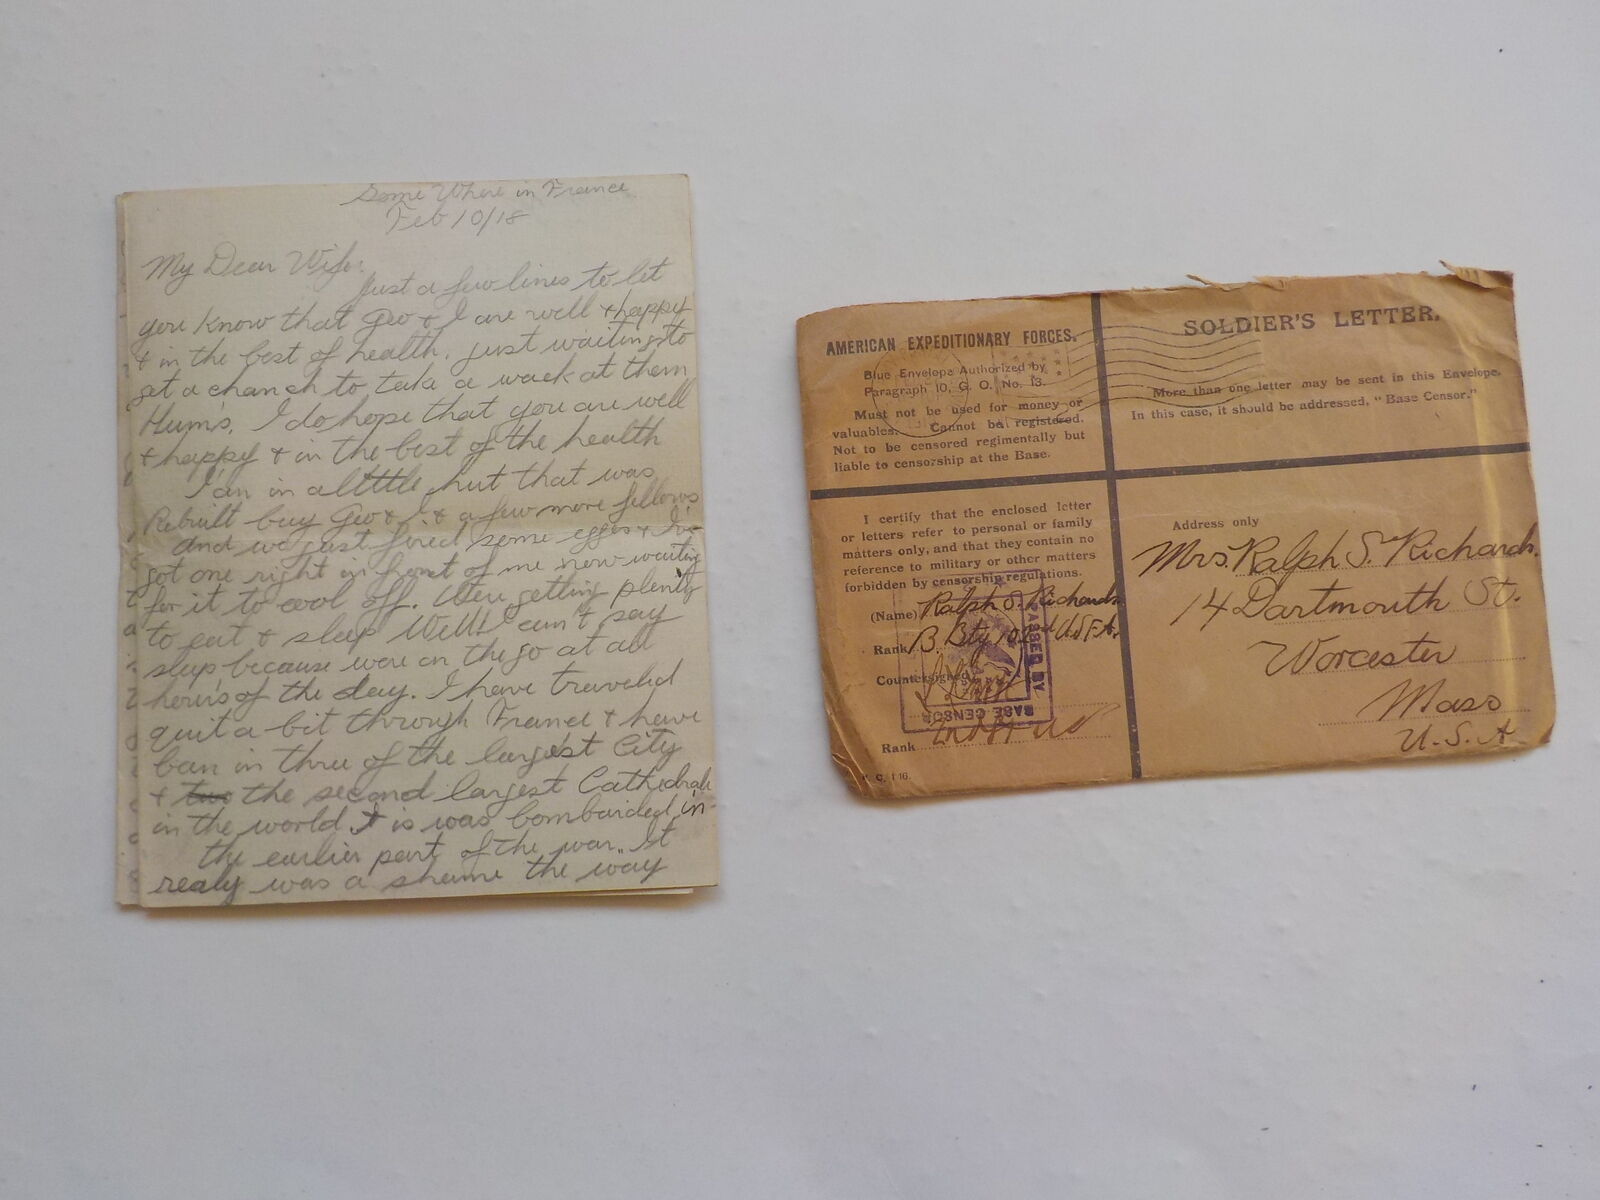 Some Where in France
Feb 10/18
My Dear Wife:
Just a few lines to let
you know that Geo & I are well & happy
& in the best of health. just waiting to
get a chanch to take a wack at them
Hum's. I do hope that you are well
& happy & in the best of the health
I'am in a little hut that was
Rebuilt buy Geo & I & a few more fellows
and we just fired some eggs & I've
got one right in front of me now waiting
for it to cool off. Were getting plenty
to eat & sleep Well I can't say
sleep because were on the go at all
hours of the day. I have traveled
quit a bit through France & have
ban in three of the largest City
& two the second largest Cathedrals
in the world. It is was bombarded in
the earlier part of the war. It
realy was a shame the way
AMERICAN EXPEDITIONARY FORCES.
Blue Envelope Authorized by
Paragraph 10, G. O. No. 13.
Must not be used for money or
valuables. Cannot be registered.
Not to be censored regimentally but
liable to censorship at the Base.
SOLDIER'S LETTER.
More than one letter may be sent in this Envelope.
In this case, it should be addressed, "Base Censor."
I certify that the enclosed letter
or letters refer to personal or family
matters only, and that they contain no
reference to military or other matters
forbidden by censorship regulations.
(Name) Ralph S. Richards
Rank B. Bty 102 U.S.F.A.
Countersigned
Rank
PASSED BY
BASE CENSOR
Address only
Mrs. Ralph S. Richards.
14 Dartmouth St.
Worcester
Mass
U.S.A